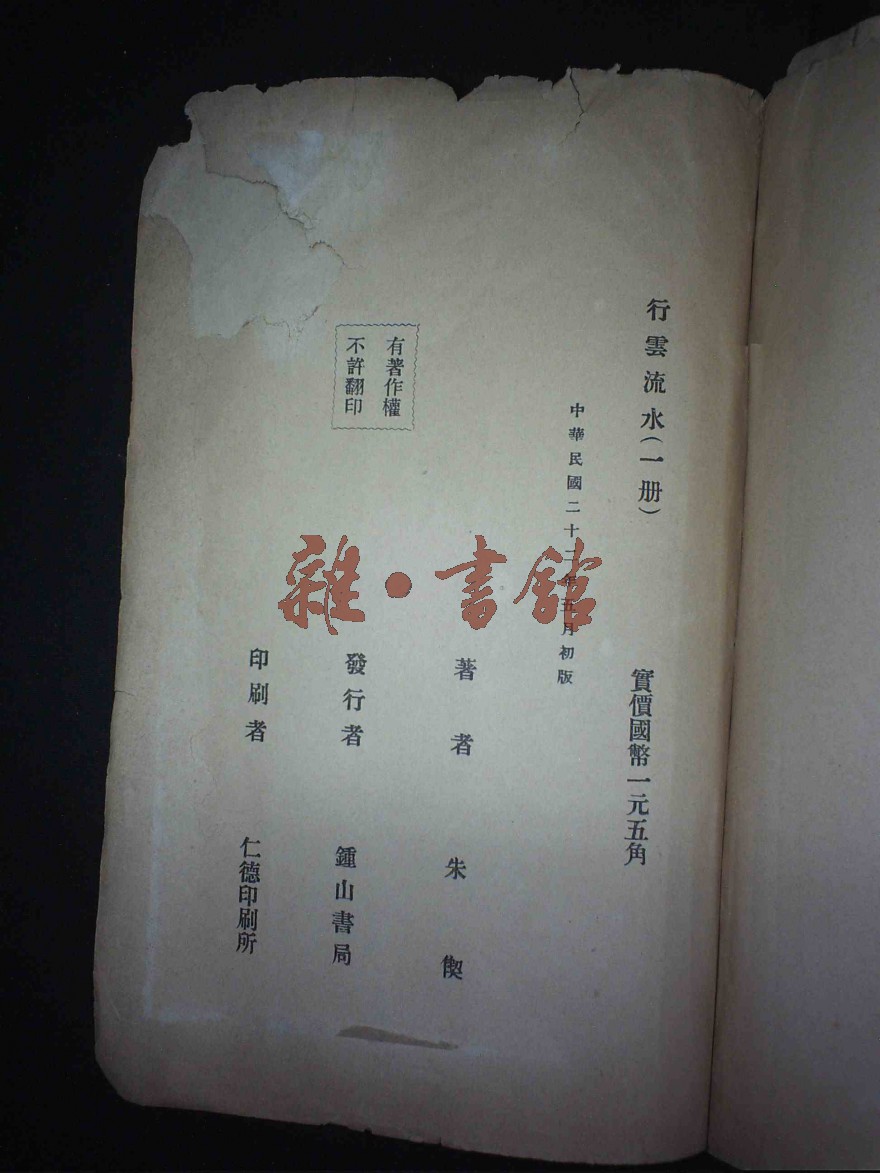 行雲流水（一册）
實價國幣一元五角
中華民國二十二年五月初版
著者 朱偰
發行者 鍾山書局
印刷者 仁德印刷所
有著作權
不許翻印
雜·書館